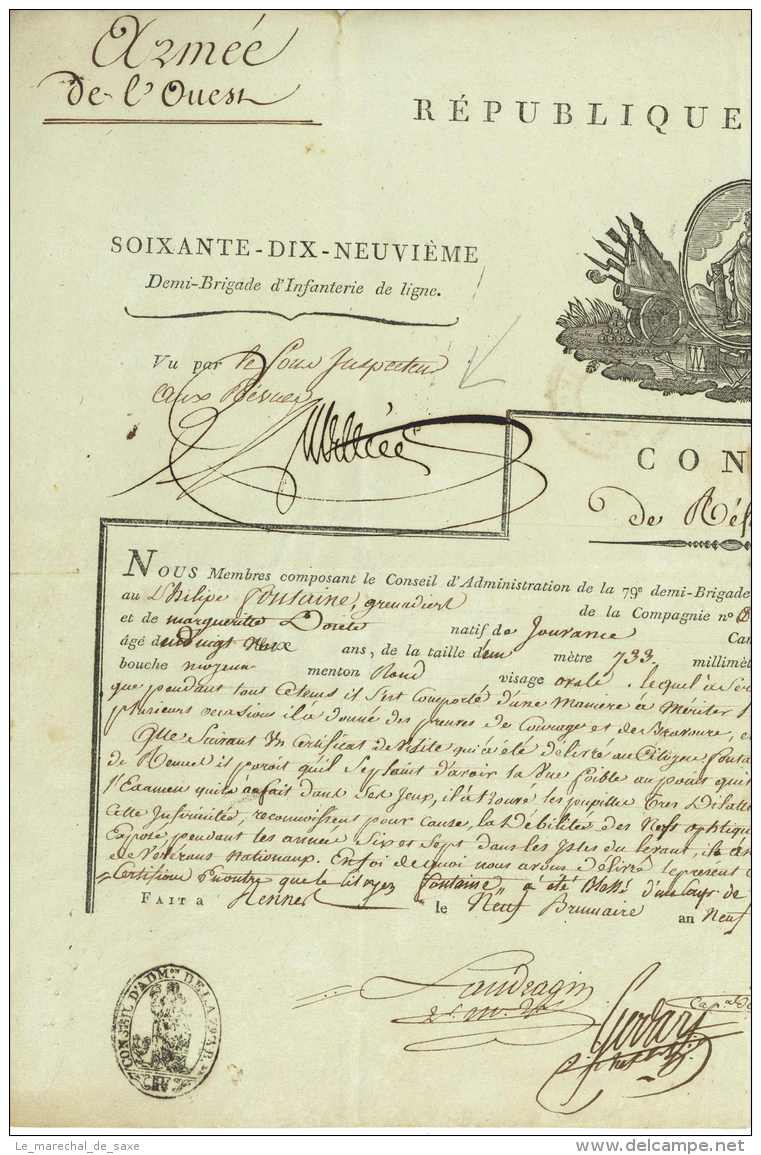 Armée
de l'Ouest
RÉPUBLIQUE
SOIXANTE-DIX-NEUVIÈME
Demi-Brigade d'Infanterie de ligne.
Vu par le Sous Inspecteur
aux Revues
CON
de Réf
NOUS Membres composant le Conseil d'Administration de la 79e demi-Brigade
au Philipe Fontaine, grenadier de la Compagnie n°
et de margueritte natif de Jouvance Can
âgé de vingt ans, de la taille d'un mètre 733. millimèt
bouche moyenne menton Rond visage ovale. lequel à Ser
que pendant tous ce tems il s'est comporté d'une Maniere à Mériter
plusieurs occasions il à donné des preuves de Courage et de Bravoure, e
Que Suivant Un Certificat de Visite qui à été délivré au Citoyen Fonta
de Rennes il paroit qu'il Se plaint d'avoir la Vue foible au point qu'il
l'Examen qu'il à fait dans Ses yeux, il à trouvé les pupille tres Dilatté
Cette Infirmitée, reconnoissent pour cause, la Débilitée des Nerfs optique
Exposé pendant les année Six et Sept dans les Isles du levant, il
de Vétérans Nationaux. En foi de quoi nous avons délivré le présent
Certifions En outre que le Citoyen Fontaine à été Blessé d'un Coup de
FAIT à Rennes le Neuf Brumaire an Neuf
Landragin
Godart
Capne
CONSEIL D'ADM.on DE LA
Le_marechal_de_saxe
delcampe.net